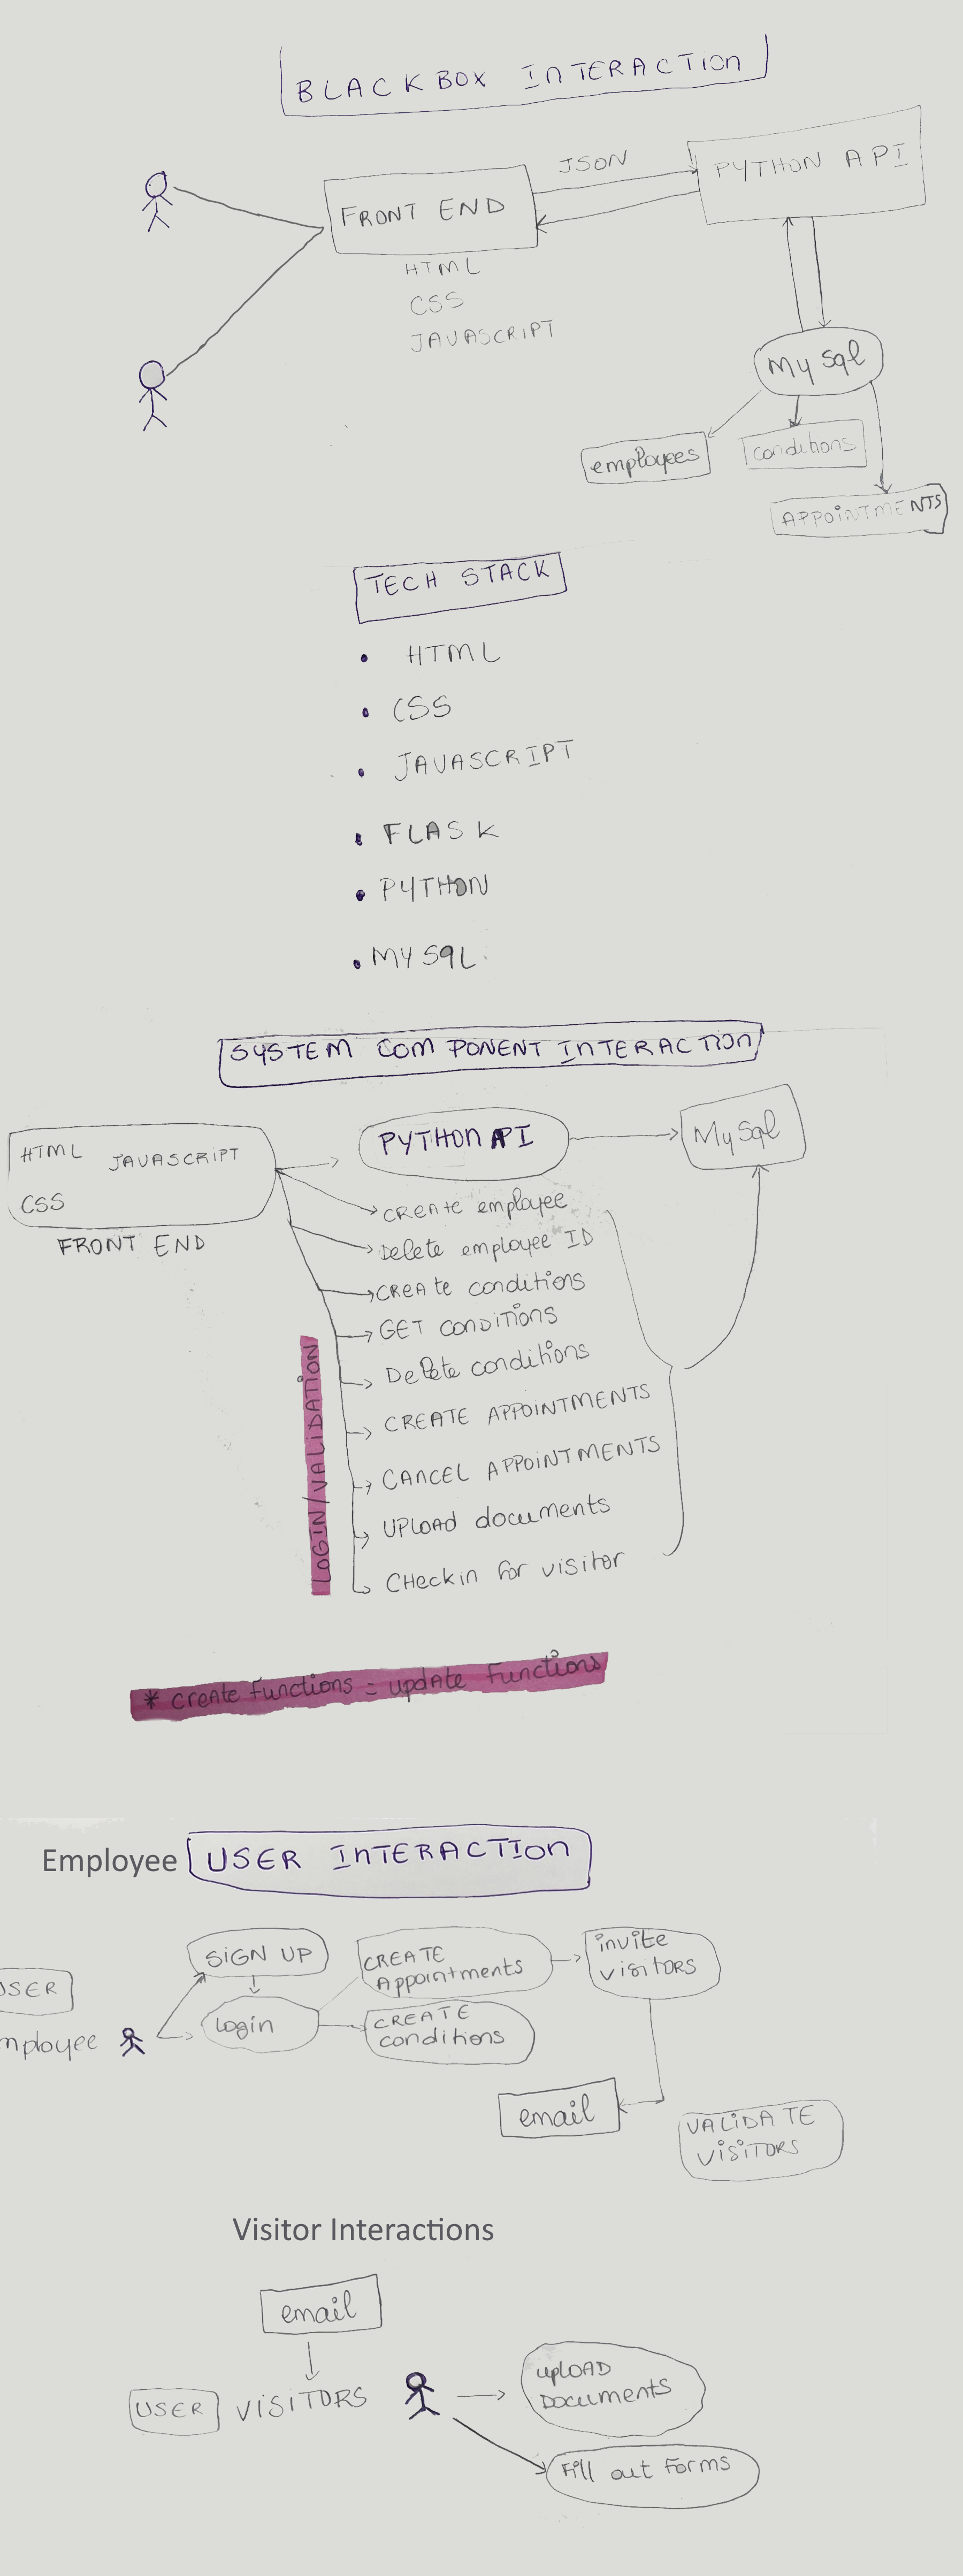 BLACKBOX INTERACTION
JSON
PYTHON API
FRONT END
HTML
CSS
JAVASCRIPT
MySql
employees
conditions
APPOINTMENTS
TECH STACK
• HTML
• CSS
• JAVASCRIPT
• FLASK
• PYTHON
• MYSQL
SYSTEM COMPONENT INTERACTION
HTML JAVASCRIPT
CSS
FRONT END
PYTHON API
MySql
CREATE employee
Delete employee ID
CREATE conditions
GET CONDITIONS
Delete conditions
CREATE APPOINTMENTS
CANCEL APPOINTMENTS
UPLOAD documents
CHeckin for visitor
LOGIN/VALIDATION
* Create functions = update functions
Employee USER INTERACTION
SIGN UP
CREATE
Appointments
invite
visitors
USER
mployee
Login
CREATE
conditions
email
VALIDATE
VISITORS
Visitor Interactions
email
USER VISITORS
upLOAD
Documents
Fill out Forms